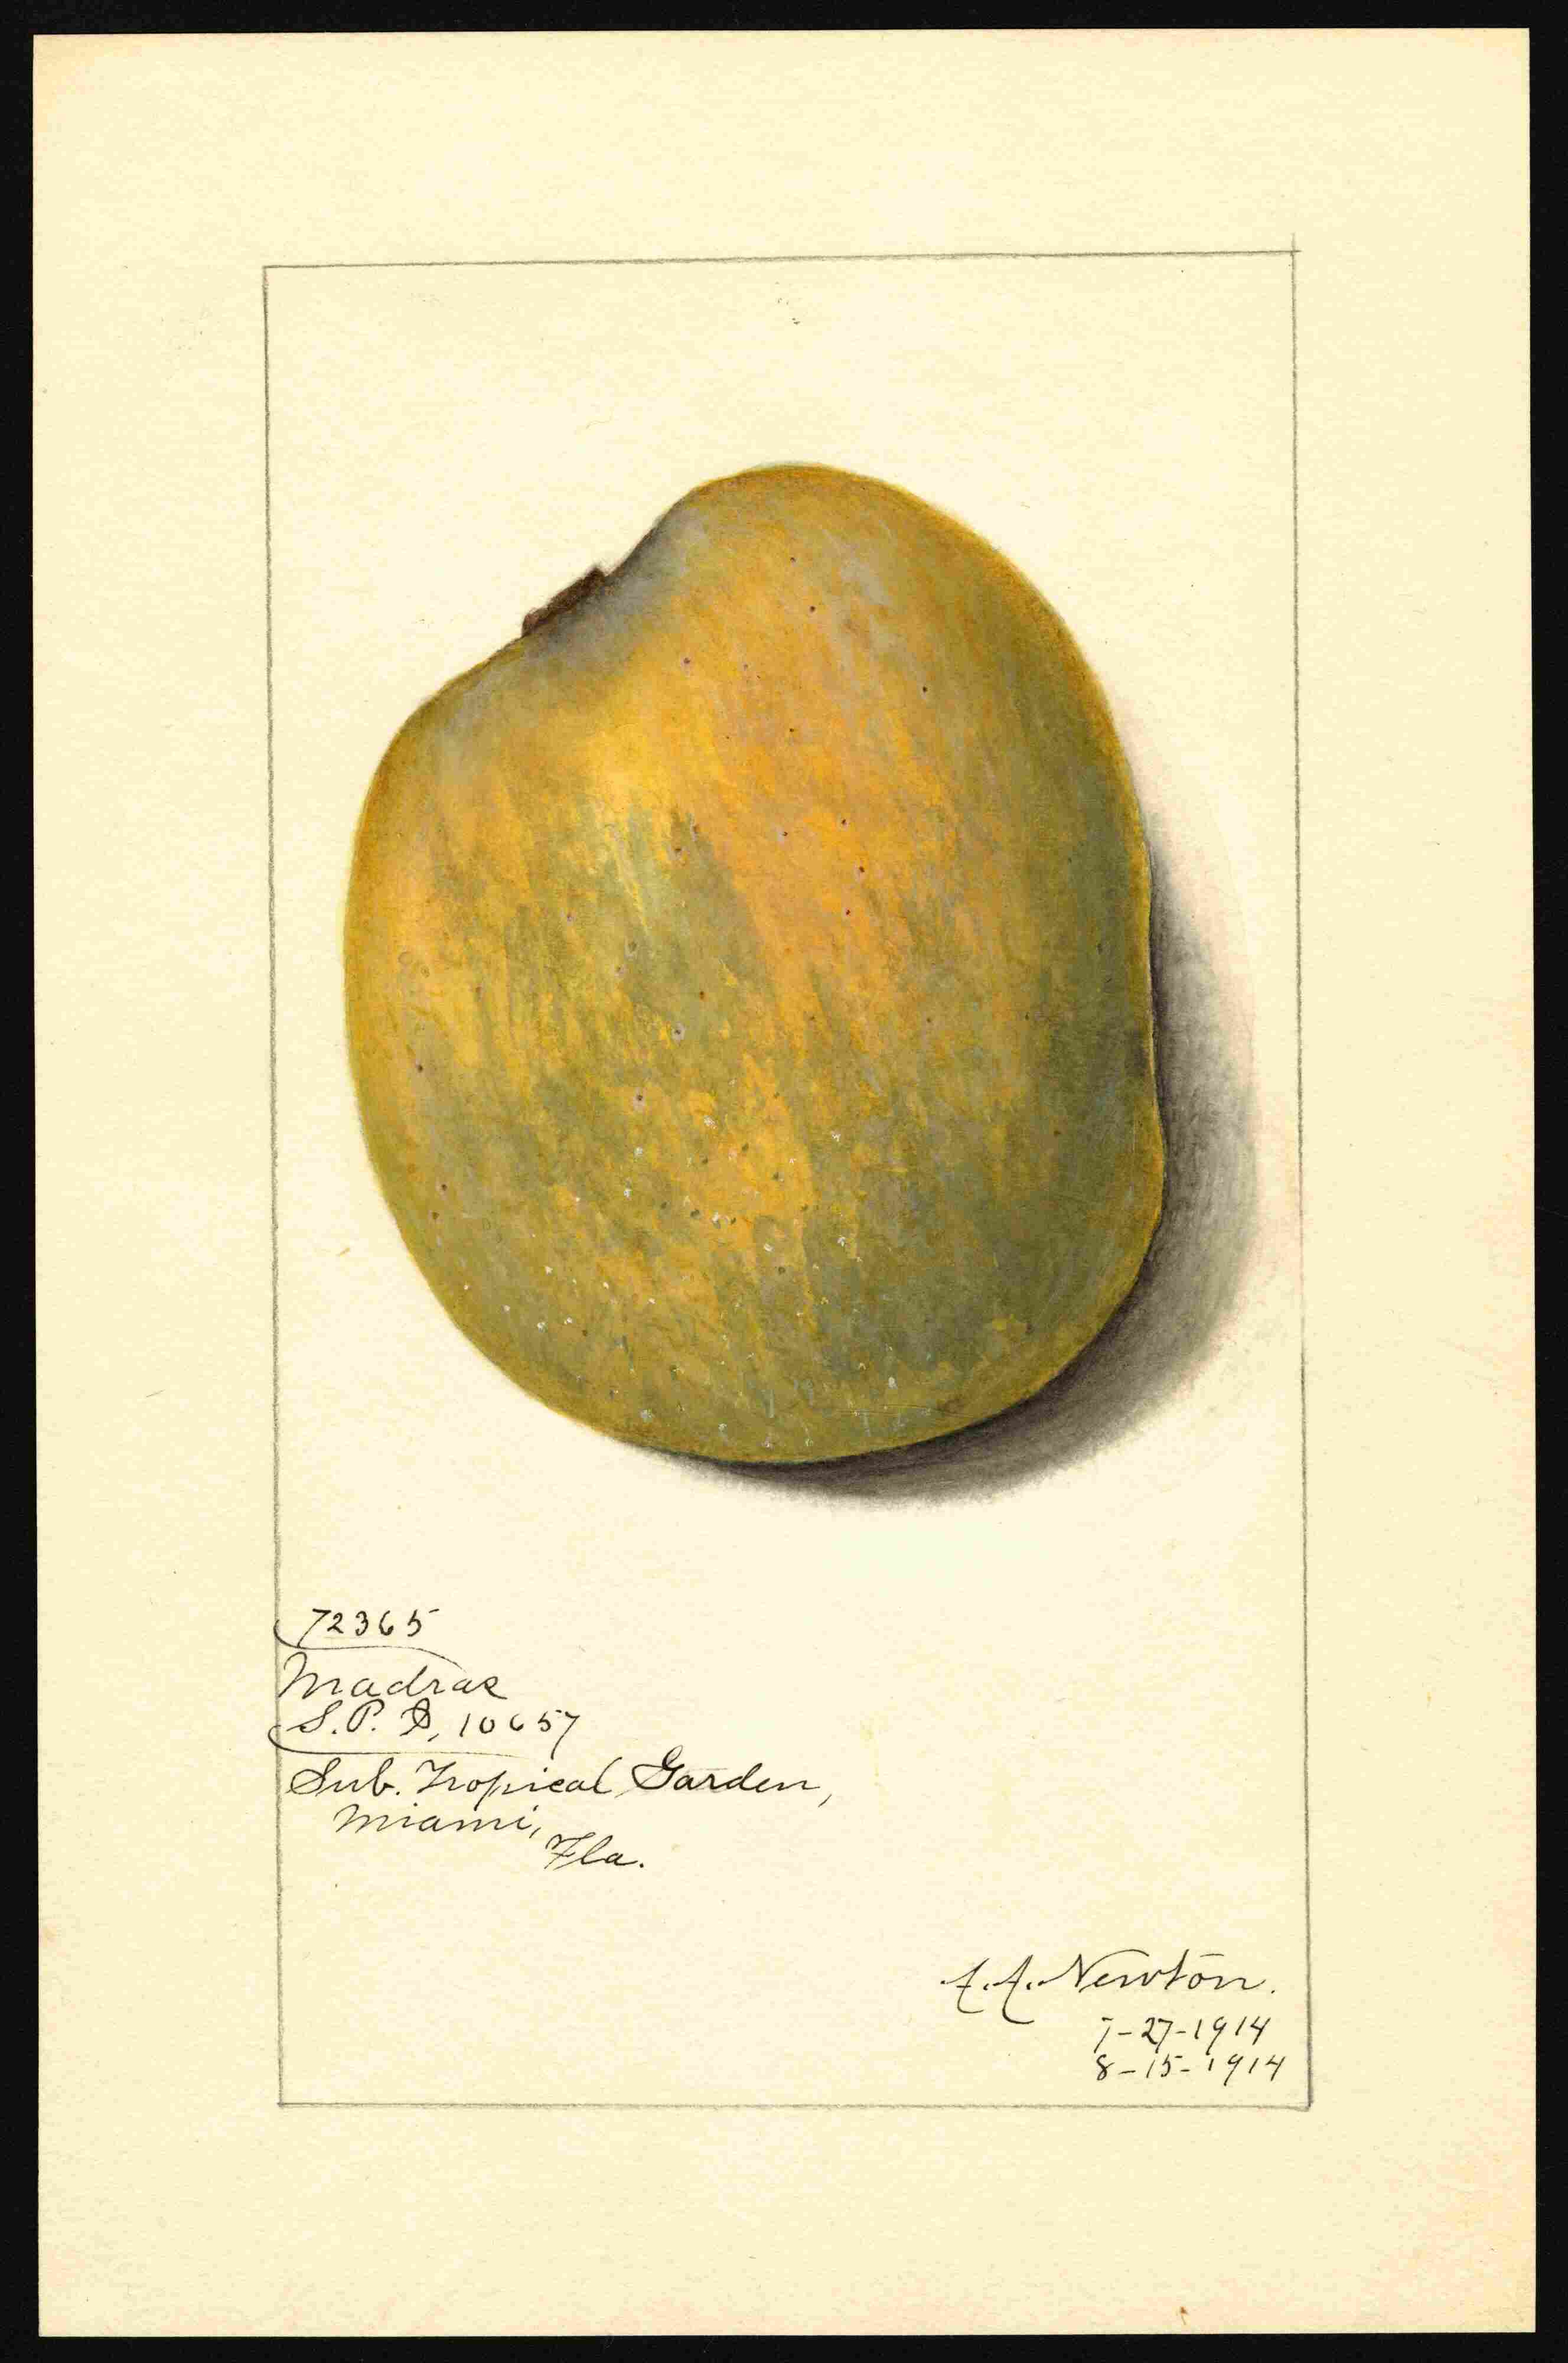 72365
Madras
S.P.I. 10657
Sub. Tropical Garden,
Miami,
Fla.
A.A. Newton.
7-27-1914
8-15-1914